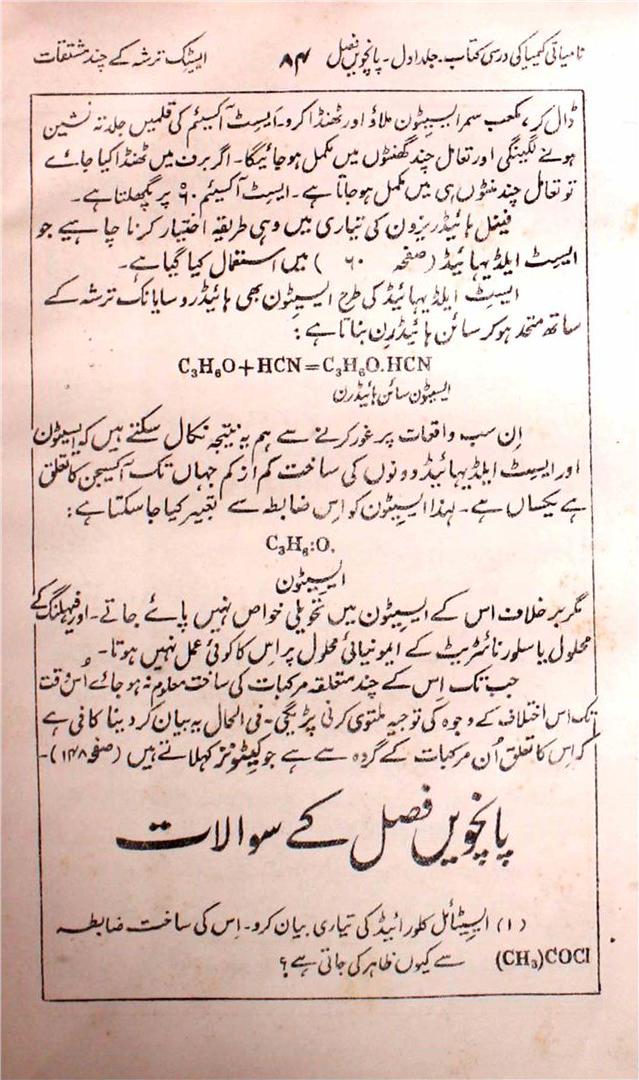 نامیاتی کیمیا کی درسی کتاب۔ جلد اول۔ پانچویں فصل ۸۴ ایسیٹک ترشہ کے چند مشتقات
ڈال کر، مکعب سمر ایسیٹون ملاؤ اور ٹھنڈا کرو۔ ایسٹ آکسیئم کی قلمیں جلد تہ نشین
ہونے لگینگی اور تعامل چند گھنٹوں میں مکمل ہو جائیگا۔ اگر برف میں ٹھنڈا کیا جائے
تو تعامل چند منٹوں ہی میں مکمل ہو جاتا ہے۔ ایسٹ آکسیئم ۶۰° پر پگھلتا ہے۔
فینل ہائیڈریزون کی تیاری میں وہی طریقہ اختیار کرنا چاہیے جو
ایسٹ ایلڈیہائیڈ (صفحہ ۶۰ ) میں استعمال کیا گیا ہے۔
ایسٹ ایلڈیہائیڈ کی طرح ایسیٹون بھی ہائیڈروسایانک ترشہ کے
ساتھ متحد ہو کر سائن ہائیڈرن بناتا ہے:
C₃H₆O+HCN=C₃H₆O.HCN
ایسیٹون سائن ہائیڈرن
اِن سب واقعات پر غور کرنے سے ہم یہ نتیجہ نکال سکتے ہیں کہ ایسیٹون
اور ایسٹ ایلڈیہائیڈ دونوں کی ساخت کم از کم جہاں تک آکسیجن کا تعلق
ہے یکساں ہے۔ لہذا ایسیٹون کو اِس ضابطہ سے تعبیر کیا جا سکتا ہے:
C₃H₆:O.
ایسیٹون
مگر برخلاف اس کے ایسیٹون میں تحویلی خواص نہیں پائے جاتے۔ اور فیہلنگ کے
محلول یا سلور نائٹریٹ کے ایمونیائی محلول پر اِس کا کوئی عمل نہیں ہوتا۔
جب تک اِس کے چند متعلقہ مرکبات کی ساخت معلوم نہ ہو جائے اُس وقت
تک اس اختلاف کے وجوہ کی توجیہ ملتوی کرنی پڑیگی۔ فی الحال یہ بیان کر دینا کافی ہے
کہ اِس کا تعلق اُن مرکبات کے گروہ سے ہے جو کیٹونز کہلاتے ہیں (صفحہ ۱۴۸)۔
پانچویں فصل کے سوالات
(۱) ایسیٹائل کلورائیڈ کی تیاری بیان کرو۔ اِس کی ساخت ضابطہ
(CH₃)COCl سے کیوں ظاہر کی جاتی ہے؟